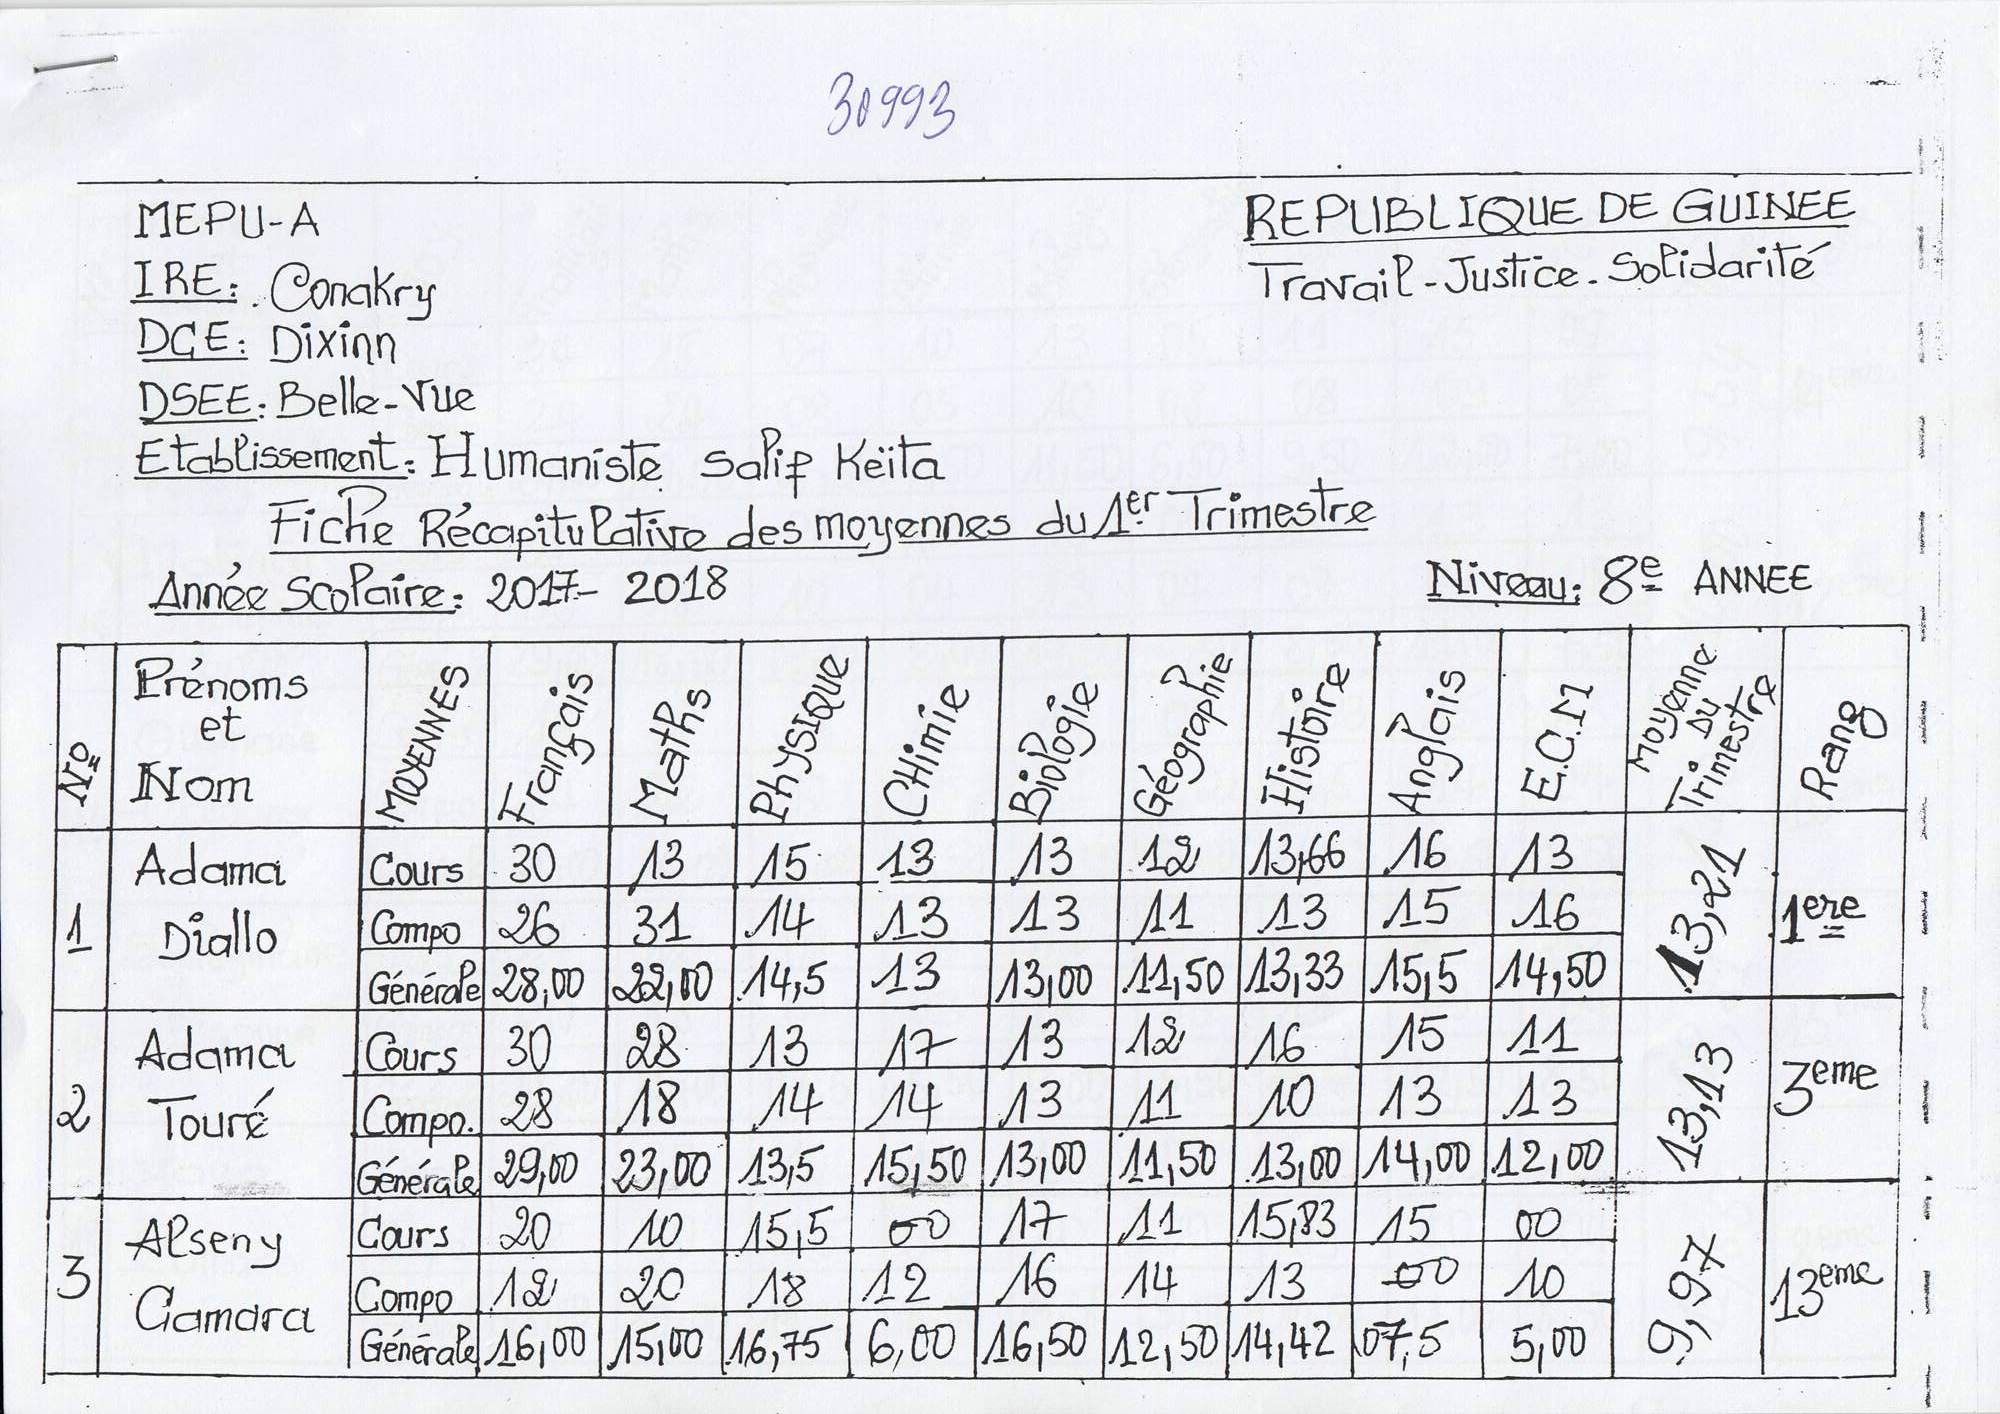 30993
MEPU-A
REPUBLIQUE DE GUINEE
IRE: Conakry
Travail-Justice-Solidarité
DCE: Dixinn
DSEE: Belle-Vue
Etablissement: Humaniste Salif Keïta
Fiche Récapitulative des moyennes du 1er Trimestre
Année Scolaire: 2017-2018
Niveau: 8e ANNEE
No Prénoms et Nom MOYENNES Français Maths PHYSIQUE CHimie Biologie Géographie Histoire Anglais E.C.M Moyenne Du Trimestre Rang
1 Adama Diallo 13,21 1ere
Cours 30 13 15 13 13 12 13,66 16 13
Compo 26 31 14 13 13 11 13 15 16
Générale 28,00 22,00 14,5 13 13,00 11,50 13,33 15,5 14,50
2 Adama Touré 13,13 3eme
Cours 30 28 13 17 13 12 16 15 11
Compo. 28 18 14 14 13 11 10 13 13
Générale 29,00 23,00 13,5 15,50 13,00 11,50 13,00 14,00 12,00
3 Alseny Camara 9,97 13eme
Cours 20 10 15,5 00 17 11 15,83 15 00
Compo 12 20 18 12 16 14 13 00 10
Générale 16,00 15,00 16,75 6,00 16,50 12,50 14,42 07,5 5,00